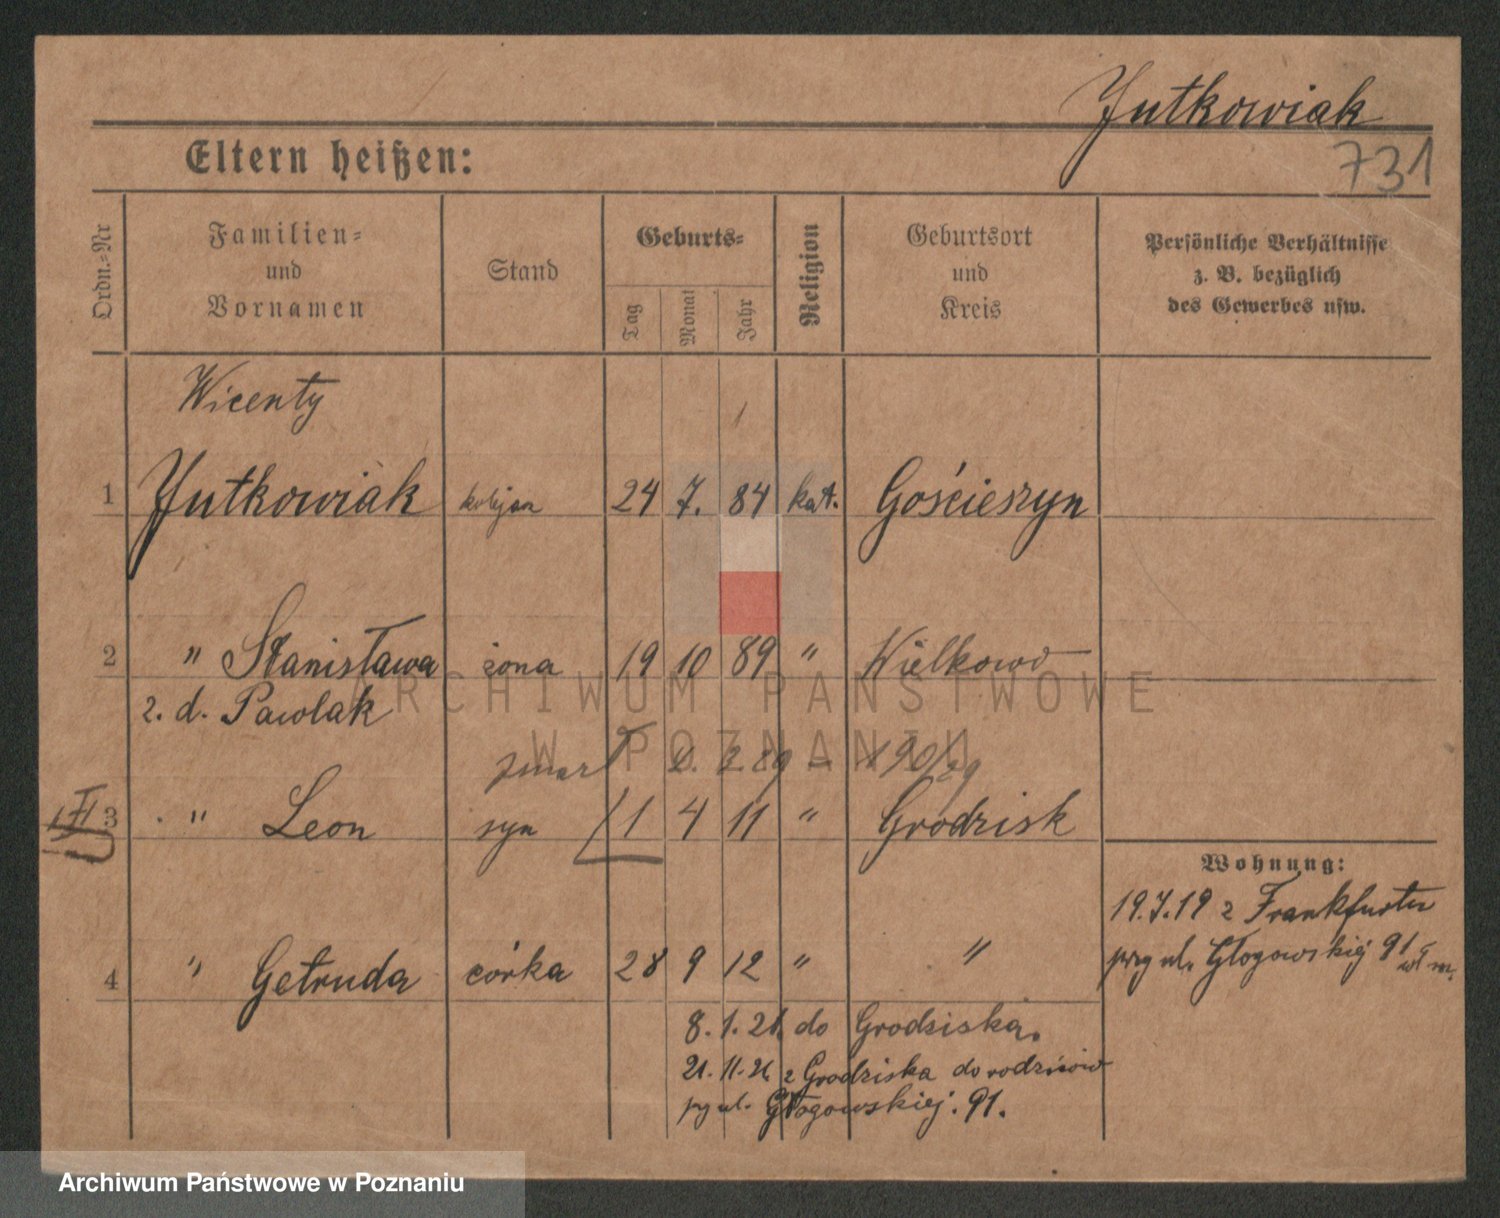 Jutkowiak
731
Eltern heißen:
Ordn.=Nr
Familien=
und
Vornamen
Stand
Geburts=
Tag
Monat
Jahr
Religion
Geburtsort
und
Kreis
Persönliche Verhältnisse
z. B. bezüglich
des Gewerbes usw.
Wicenty
1 Jutkowiak kolejarz 24 7. 84 kat. Gościeszyn
2 " Stanisława żona 19 10 89 " Wielkowo
z. d. Pawlak
zmarł
3 " Leon syn 1 4 11 " Grodzisk
Wohnung:
19.7.19 z Frankfurtu
przy ul. Głogowskiej 91
4 " Getruda córka 28 9 12 " "
8.1.21. do Grodziska.
21.11.21 z Grodziska do rodziców
przy ul. Głogowskiej. 91.
ARCHIWUM PAŃSTWOWE
W POZNANIU
Archiwum Państwowe w Poznaniu